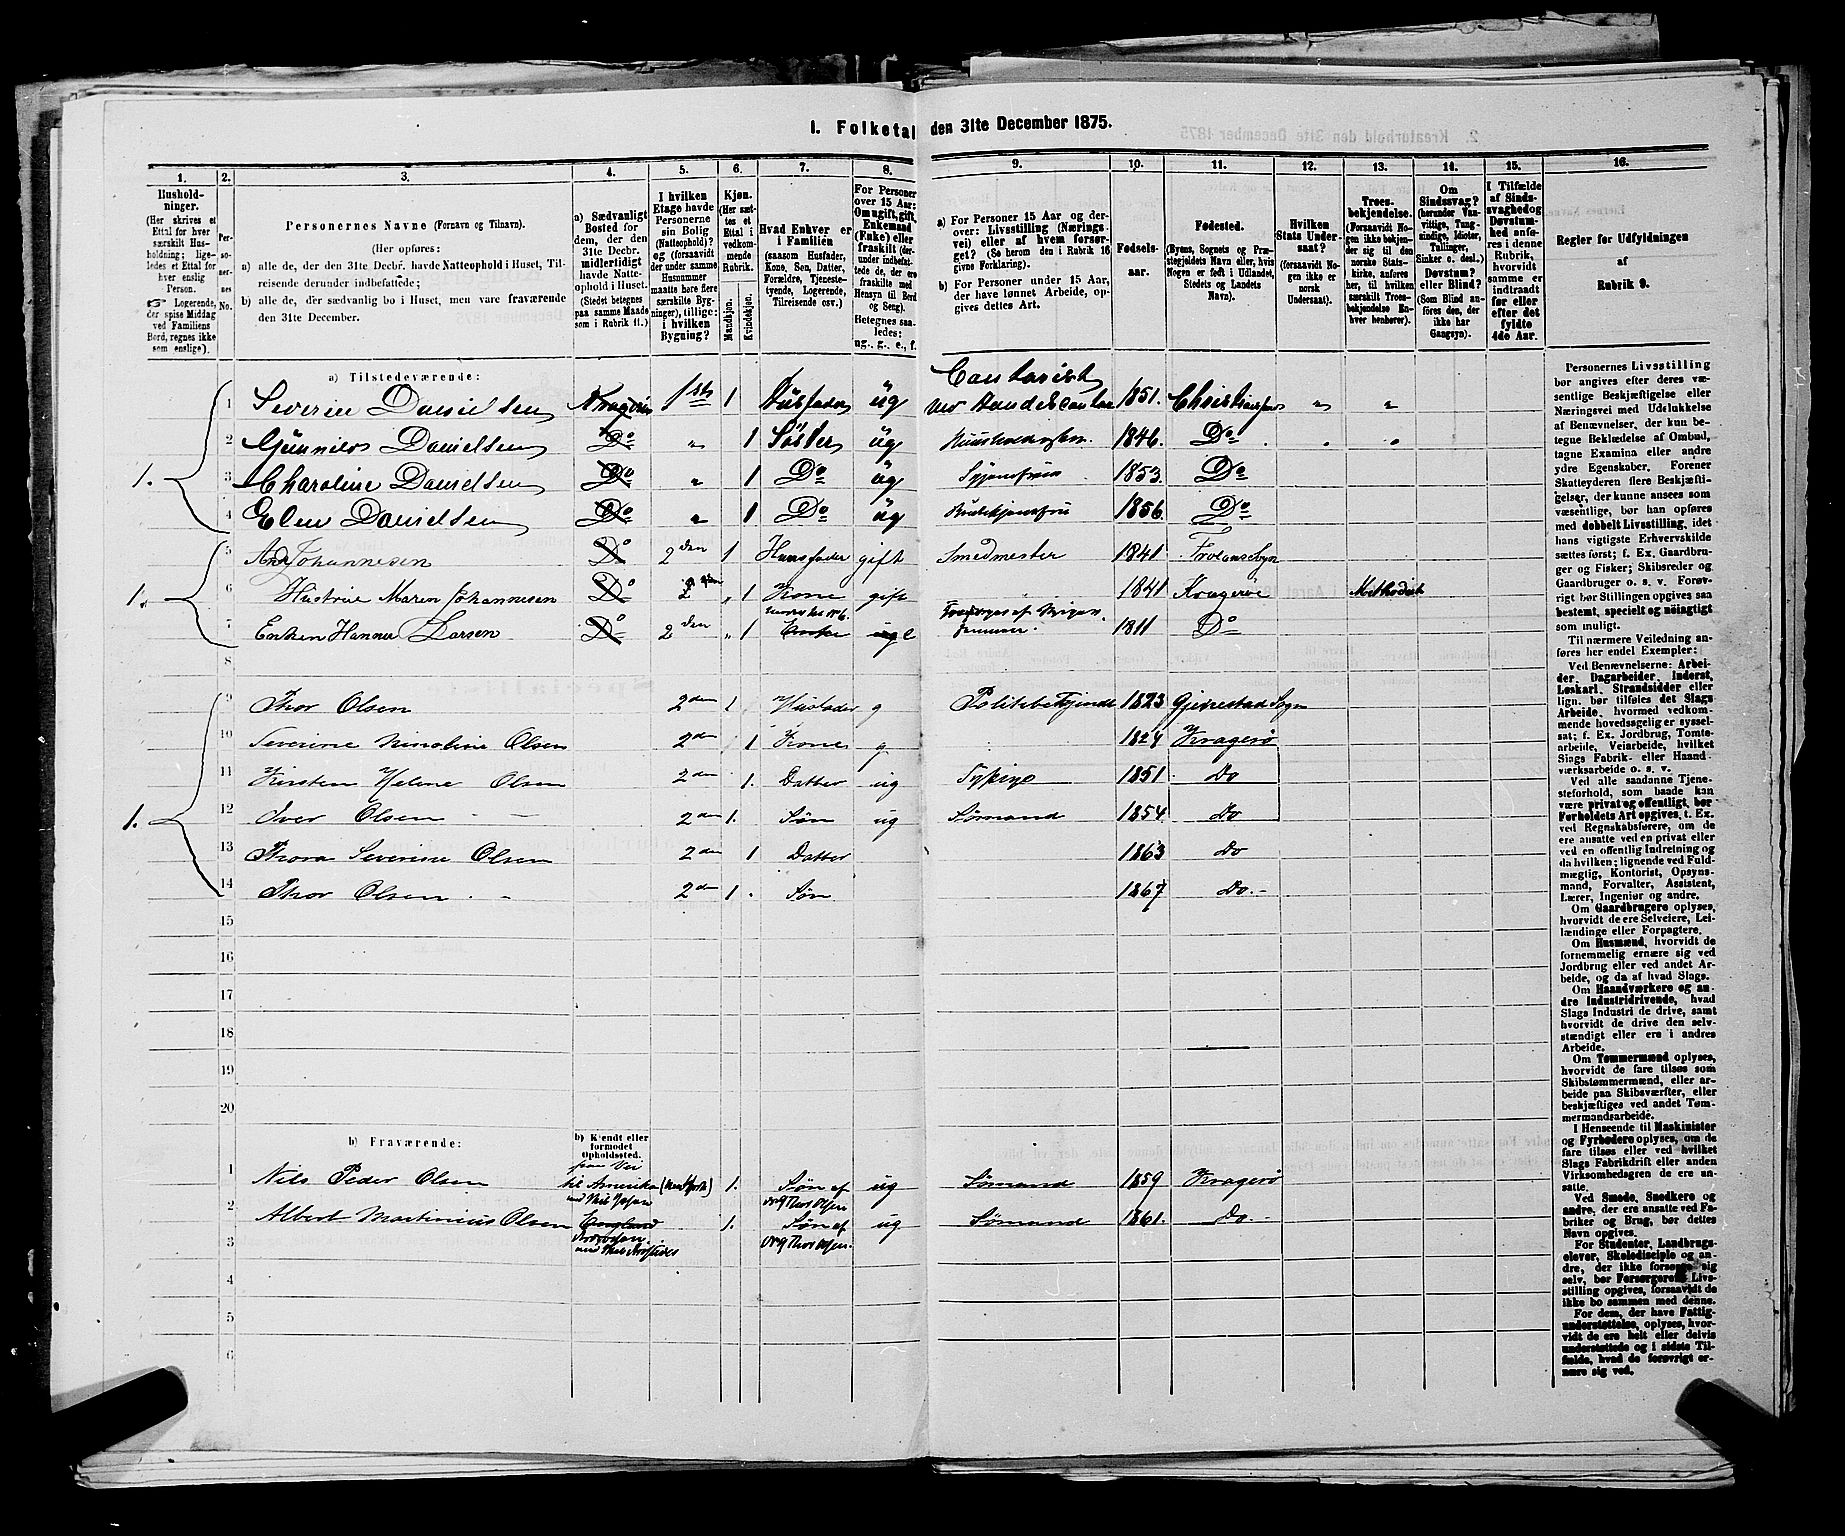 1. Folketal den 31te December 1875.
1. 2. 3. 4. 5. 6. 7. 8. 9. 10. 11. 12. 13. 14. 15. 16.
Husholdninger.
(Her skrives et
Ettal for hver
særskilt Husholdning;
ligeledes et Ettal for
hver enslig
Person.
Logerende,
der spise Middag
ved Familiens
Bord, regnes ikke
som enslige).
Personernes No.
Personernes Navne (Fornavn og Tilnavn).
(Her opføres:
a) alle de, der den 31te Decbr. havde Natteophold i Huset, Tilreisende derunder indbefattede;
b) alle de, der sædvanlig bo i Huset, men vare fraværende
den 31te December.
a) Sædvanligt
Bosted for
dem, der den
31te Decbr.
midlertidigt
havde Natteophold i Huset.
(Stedet betegnes
paa samme Maade
som i Rubrik 11.)
I hvilken
Etage havde
Personerne
sin Bolig
(Natteophold)?
og (forsaavidt
der under samme
Husnummer
maatte høre flere
særskilte Bygninger), tillige:
i hvilken
Bygning?
Kjøn.
(Her sættes et
Ettal i
vedkommende
Rubrik.
Mandkjøn.
Kvindekjøn.
Hvad Enhver er
i Familien
(saasom Husfader,
Kone, Søn, Datter,
Forældre, Tjenestetyende, Logerende,
Tilreisende osv.)
For Personer
over 15 Aar:
Om ugift, gift,
Enkemand
(Enke) eller
fraskilt (derunder indbefattede, de ere
fraskilte med
Hensyn til Bord
og Seng).
Betegnes saaledes:
ug., g., e., f.
a) For Personer 15 Aar og derover: Livsstilling (Næringsvei) eller af hvem forsørget? (Se herom den i Rubrik 16
givne Forklaring).
b) For Personer under 15 Aar,
der have lønnet Arbeide, opgives dettes Art.
Fødselsaar.
Fødested.
(Byens, Sognets og Præstegjeldets Navn eller, hvis
Nogen er født i Udlandet,
Stedets og Landets
Navn).
Hvilken
Stats Undersaat?
(forsaavidt Nogen ikke er
norsk
Undersaat).
Troesbekjendelse.
(Forsaavidt Nogen ikke bekjender sig til den
norske Statskirke, anføres
her, til hvilken
særskilt Troesbekjendelse Enhver henhører).
Om
Sindssvag?
(herunder Vanvittige, Tungsindige, Idioter,
Tullinger,
Sinker o. desl.)
Døvstum?
eller Blind?
(Som Blind anføres den, der
ikke har
Gangsyn).
I Tilfælde
af Sindssvaghed og
Døvstumhed anføres i denne
Rubrik,
hvorvidt
samme er
indtraadt
før eller
efter det
fyldte
4de Aar.
Regler for Udfyldningen
af
Rubrik 9.
a) Tilstedeværende:
1 Severin Danielsen Kragerø 1ste 1 Husfader ug Contorist ved Handelscontor 1851. Christiansand " "
2 Danielsen Do " 1 Søster ug 1846. Do " "
1. 3 Charoline Danielsen Do " 1 Do ug Syjomfru 1853. Do
4 Elen Danielsen Do " 1 Do ug 1856. Do
5 Johannesen Do 2den 1 Huusfader gift Smedmester 1841
1. 6 Hustrue Maren Johannesen Do 2den " 1 Kone gift 1841 Kragerøe Methodist
7 Enken Hanna Larsen Do 2den " 1 Enke e 1811 Do
8
9 Thor Olsen 2den 1 Husfader g Politibetjendt 1823 Gjerrestad Sogn
10 Severine Nicoline Olsen 2den 1 Kone g 1824 Kragerø
11 Kirsten Helene Olsen 2den 1. Datter ug Sypige 1851. Do
1. 12 Iver Olsen 2den 1. Søn ug Sømand 1854. Do
13 Thora Severine Olsen 2den 1 Datter 1863 Do
14 Thor Olsen 2den 1 Søn 1867 Do
15
16
17
18
19
20
b) Fraværende:
b) Kjendt eller
formodet
Opholdssted.
1 Nils Peder Olsen paa Vei til Amerika 1. Søn af No 9 Thor Olsen ug Sømand 1859 Kragerø
2 Albert Martinius Olsen England 1. Søn af No 9 Thor Olsen ug Sømand 1861. Do
3
4
5
6
Personernes Livsstilling
bør angives efter deres væsentlige Beskjæftigelse eller
Næringsvei med Udelukkelse
af Benævnelser, der kun betegne Beklædelse af Ombud,
tagne Examina eller andre
ydre Egenskaber. Forener
Skatteyderen flere Beskjæftigelser, der kunne ansees som
væsentlige, bør han opføres
med dobbelt Livsstilling, idet
hans vigtigste Erhvervskilde
sættes først; f. Ex. Gaardbruger og Fisker; Skibsreder og
Gaardbruger o. s. v. Forøvrigt bør Stillingen opgives saa
bestemt, specielt og nøiagtigt
som muligt.
Til nærmere Veiledning anføres her endel Exempler:
Ved Benævnelserne: Arbeider, Dagarbeider, Inderst,
Løskarl, Strandsidder eller
lign. bør tilføies det Slags
Arbeide, hvormed vedkommende hovedsagelig er sysselsat; f. Ex. Jordbrug, Tomtearbeide, Veiarbeide, hvilket
Slags Fabrik- eller Haandværksarbeide o. s. v.
Ved alle saadanne Tjenesteforhold, som baade kan
være privat og offentligt, bør
Forholdets Art opgives, t. Ex.
ved Regnskabsførere, om de
ere ansatte ved en privat eller
ved en offentlig Indretning og
da hvilken; lignende ved Fuldmægtig, Kontorist, Opsynsmand, Forvalter, Assistent,
Lærer, Ingeniør og andre.
Om Gaardbrugere oplyses,
hvorvidt de ere Selveiere, Leilændinge eller Forpagtere.
Om Husmænd, hvorvidt de
fornemmelig ernære sig ved
Jordbrug eller ved andet Arbeide, og da af hvad Slags.
Om Haandværkere og andre Industridrivende, hvad
Slags Industri de drive, samt
hvorvidt de drive den selvstændigt eller ere i andres
Arbeide.
Om Tømmermænd oplyses,
hvorvidt de fare tilsøs som
Skibstømmermænd, eller arbeide paa Skibsværfter, eller
beskjæftiges ved andet Tømmermandsarbeide.
I Henseende til Maskinister
og Fyrbødere oplyses, om de
fare tilsøs eller ved hvilket
Slags Fabrikdrift eller anden
Virksomhedsgren de ere ansatte.
Ved Smede, Snedkere og
andre, der ere ansatte ved Fabriker og Brug, bør dettes
Navn opgives.
For Studenter, Landbrugselever, Skoledisciple og andre, der ikke forsørge sig
selv, bør Forsørgerens Livsstilling opgives, forsaavidt de
ikke bo sammen med denne.
For dem, der have Fattigunderstøttelse, oplyses, hvorvidt de ere helt eller delvis
understøttede og i sidste Tilfælde, hvad de forøvrigt ernære sig ved.